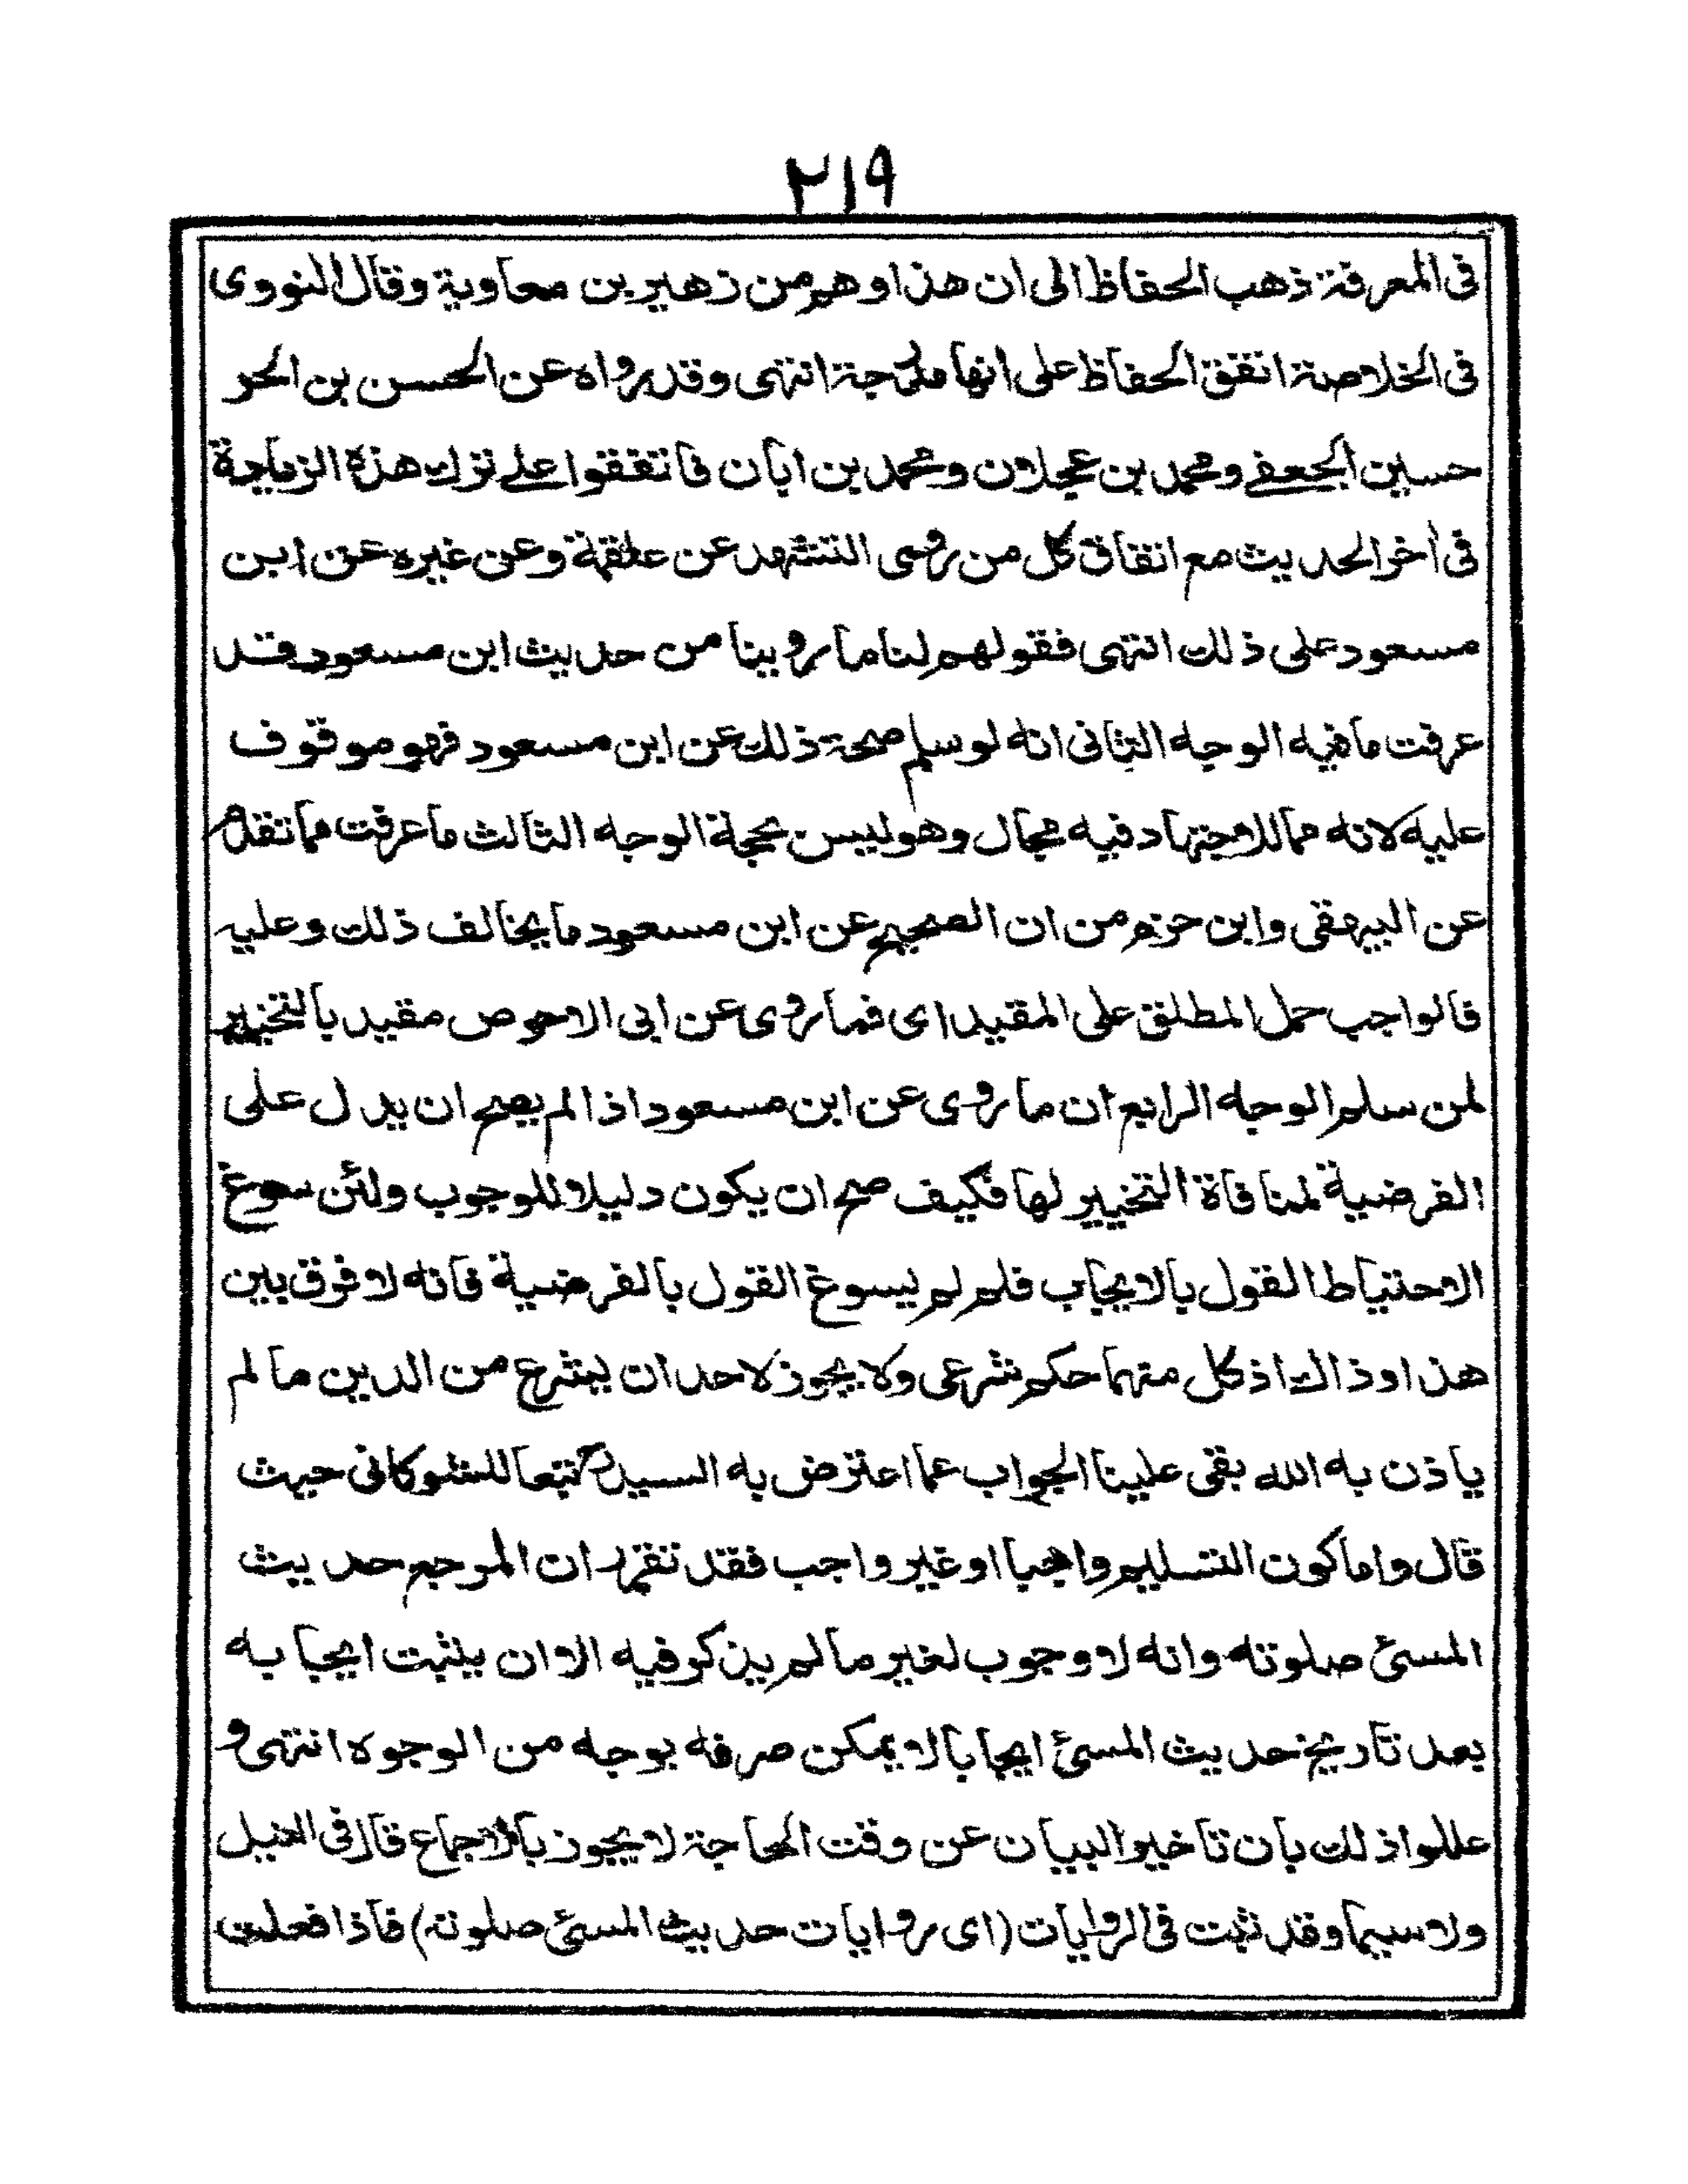 ٢١٩
فی المعرفة ذهب الحفاظ الی ان هذا وهم من زهیر بن معاویة وقال النووی
فی الخلاصة اتفق الحفاظ علی انها مدرجة انتهی وقد رواه عن الحسن بن الحر
حسین الجعفے ومحمد بن عجلان ومحمد بن ابان فاتفقوا علے ترك هذه الزیادة
فی اٰخر الحدیث مع اتفاق کل من روی التشهد عن علقمة وعن غیره عن ابن
مسعود علی ذلك انتهی فقولهم لنا ما روینا من حدیث ابن مسعود قد
عرفت ما فیه الوجه الثانی انه لو سلم صحة ذلك عن ابن مسعود فهو موقوف
علیه لانه مما للاجتهاد فیه مجال وهو لیس بحجة الوجه الثالث ما عرفت مما تقدم
عن البیهقی وابن حزم من ان الصحیح عن ابن مسعود ما یخالف ذلك وعلیه
فالواجب حمل المطلق علی المقید ای فما روی عن ابی الاحوص مقید بالتخییر
لمن سلم الوجه الرابع ان ما روی عن ابن مسعود اذا لم یصح ان یدل علی
الفرضیة لمنافاة التخییر لها فکیف صح ان یکون دلیلا للوجوب ولئن سوغ
الاحتیاط القول بالایجاب فلم لم یسوغ القول بالفرضیة فانه لا فرق بین
هذا وذاك اذ کل منهما حکم شرعی ولا یجوز لاحد ان یشرع من الدین ما لم
یاذن به الله بقی علینا الجواب عما اعترض به السید تبعا للشوکانی حیث
قال واما کون التسلیم واجبا او غیر واجب فقد تقرر ان المرجع حدیث
المسئ صلوته وانه لا وجوب لغیر ما لم یذکر فیه الا ان یثبت ایجابه
بعد تاریخ حدیث المسئ ایجابا لا یمکن صرفه بوجه من الوجوه انتهی و
عللوا ذلك بان تاخیر البیان عن وقت الحاجة لا یجوز بالاجماع قال فی النیل
ولا سیما وقد ثبت فی الروایات (ای روایات حدیث المسئ صلوته) فاذا فعلت